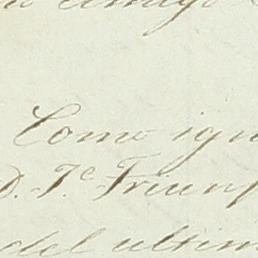 amigo
Como igu
D. Je Triunf
del ultim